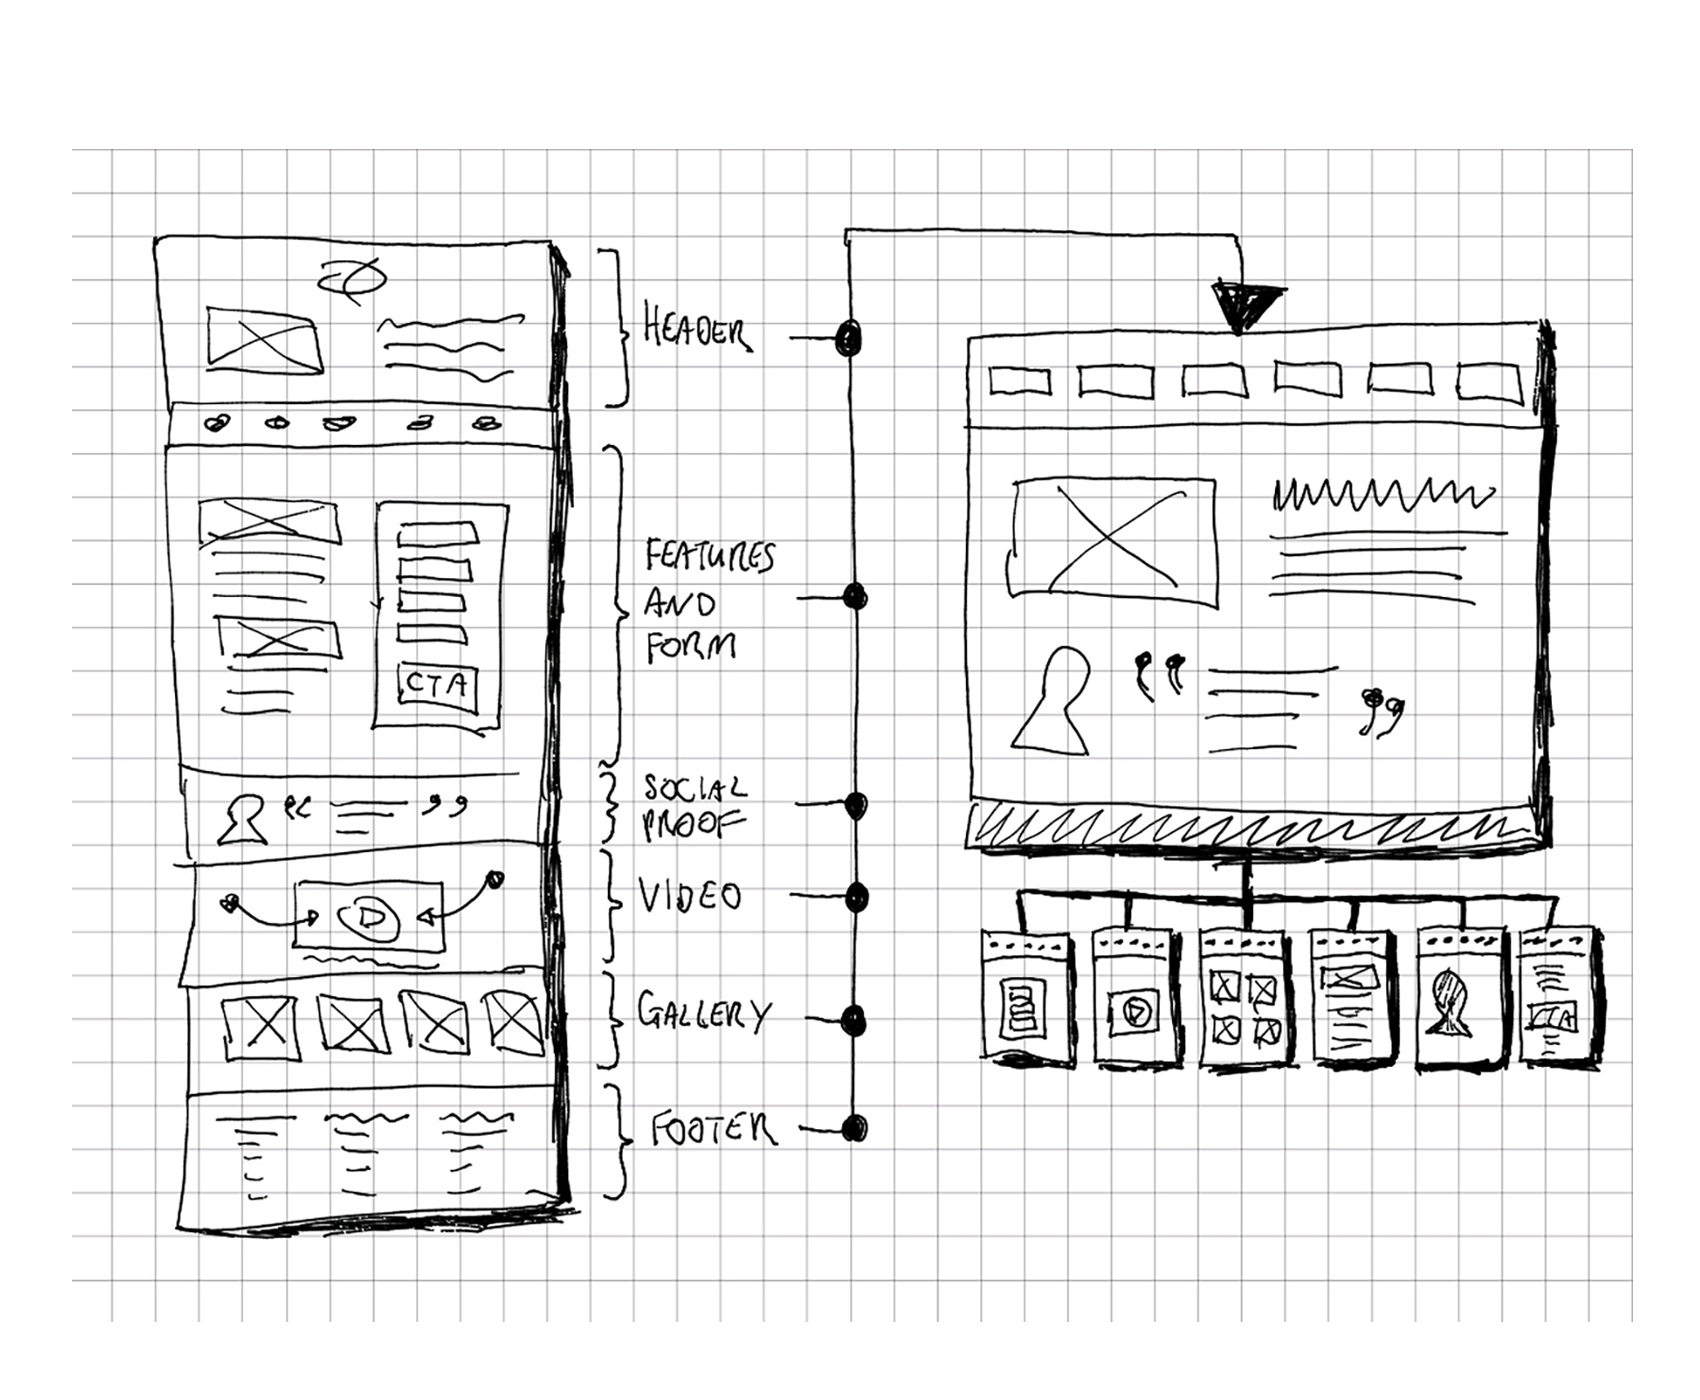 HEADER
FEATURES
AND
FORM
CTA
SOCIAL
PROOF
VIDEO
GALLERY
FOOTER
CTA